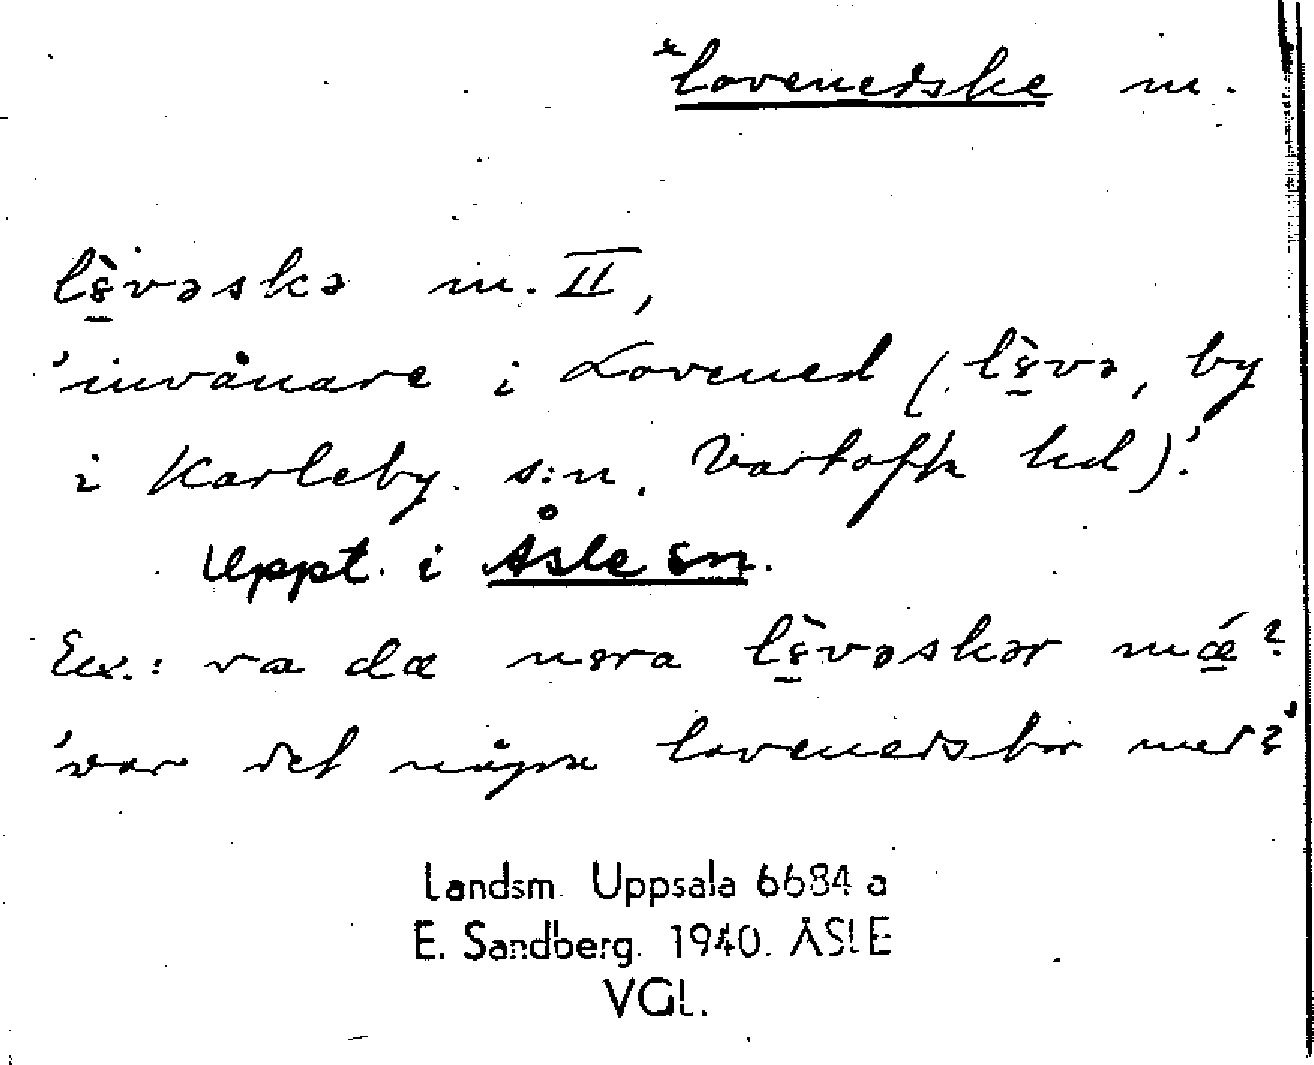 *lovenedske m.
lɞ̀vəskə m. II,
'invånare i Lovened (lɞ̀və, by
i Karleby s:n, Vartofta hd).'
Uppt. i Åsle sn.
Ex.: va dæ nɞra lɞ̀vəskər mǽ?
'var det några lovenedsbor med?'
Landsm. Uppsala 6684 a
E. Sandberg. 1940. ÅSLE
VGL.